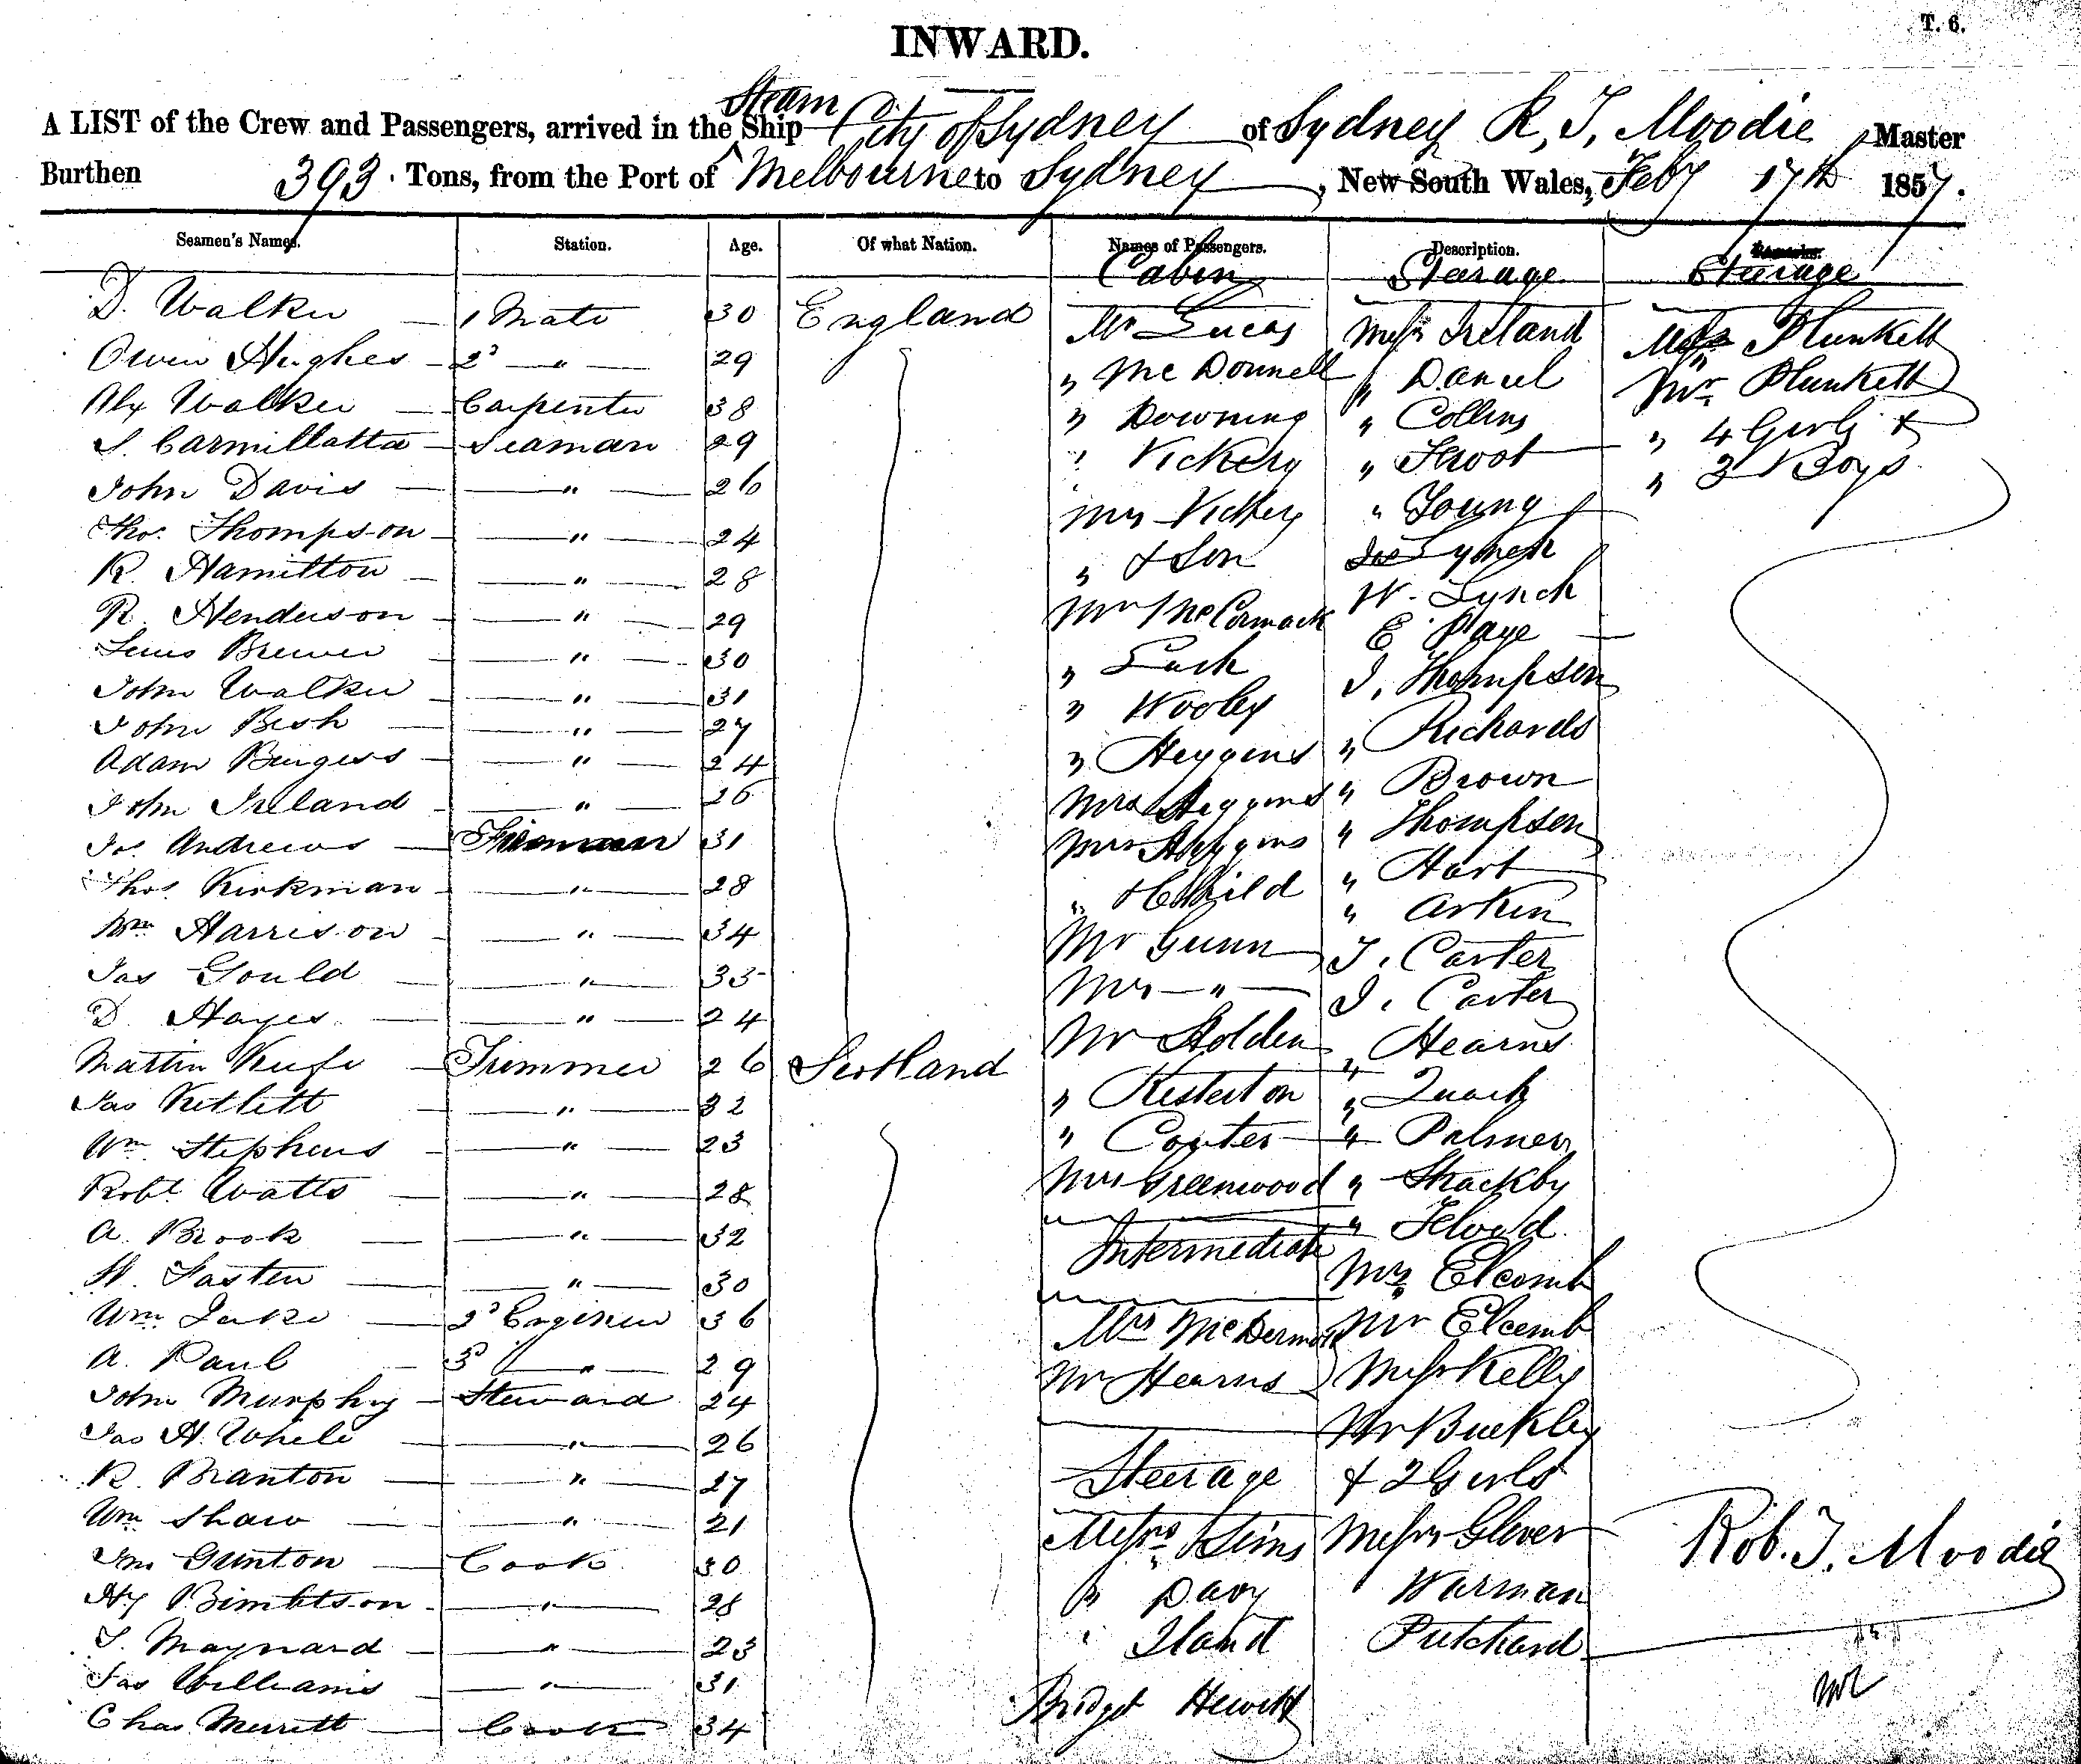 T. 6.
INWARD.
A LIST of the Crew and Passengers, arrived in the Steam Ship City of Sydney of Sydney R, T, Moodie Master
Burthen 393 Tons, from the Port of Melbourne to Sydney, New South Wales, Feby 17th 1857.
Seamen's Names. Station. Age. Of what Nation. Names of Passengers. Description. Remarks.
Cabin Stearage Stearage
D. Walker 1 Mate 30 England Mr Lucas Messrs Ireland Miss Plunkett
Owen Hughes 2d " 29 " McDonnell " Daniel Mr Plunkett
Alx Walker Carpenter 38 " Downing " Collins " 4 Girls &
S. Carmillatta Seaman 29 " Vickery " Froot " 3 Boys
John Davis " 26 Mrs Vickery " Young
Thos. Thompson " 24 " & Son Lynch
R. Hamilton " 28 Mr McCormack W. Lynch
R. Henderson " 29 E Page
Lewis Brewer " 30 " Lack J. Thompson
John Walker " 31 " Wooley " Richards
John Besh " 27 " Heggins " Brown
Adam Burgess " 24 Mrs Heggins " Thompson
John Ireland " 26 Mrs Heggins " Hart
Jos. Andrews Fireman 31 " & Child " Arkin
Thos. Kirkman " 28 Mr Gunn T. Carter
Wm Harrison " 34 Mrs " J. Carter
Jas Gould " 33 Mr Holden " Hearns
D. Hayes " 24 " Kesterton " Quack
Martin Keefe Trimmer 26 Scotland " Coulter " Palmer
Jas Kitlett " 32 Mrs Greenwood " Shackby
Wm Stephens " 23 Intermediate "
Robt Watts " 28 Mrs McDermott Mrs Elcomb
A. Brook " 32 Mr Hearns Mr Elcomb
H. Fasten " 30 Messrs Kelly
Wm. Lake 2d Engineer 36 Mr Buckley
A. Paul 3d " 29 Steerage & 2 Girls
John Murphy Steward 24 Messrs Sims Messrs Glover
Jas H. White " 26 " Davy Warman
R. Branton " 27 " Iland Pritchard
Wm Shaw " 21 Bridget Hewitt
Jno Gunton Cook 30 Rob. T. Moodie
Hy Bimbtson " 28
T. Maynard " 23
Jas Williams " 31
Chas. Merritt Cook 34